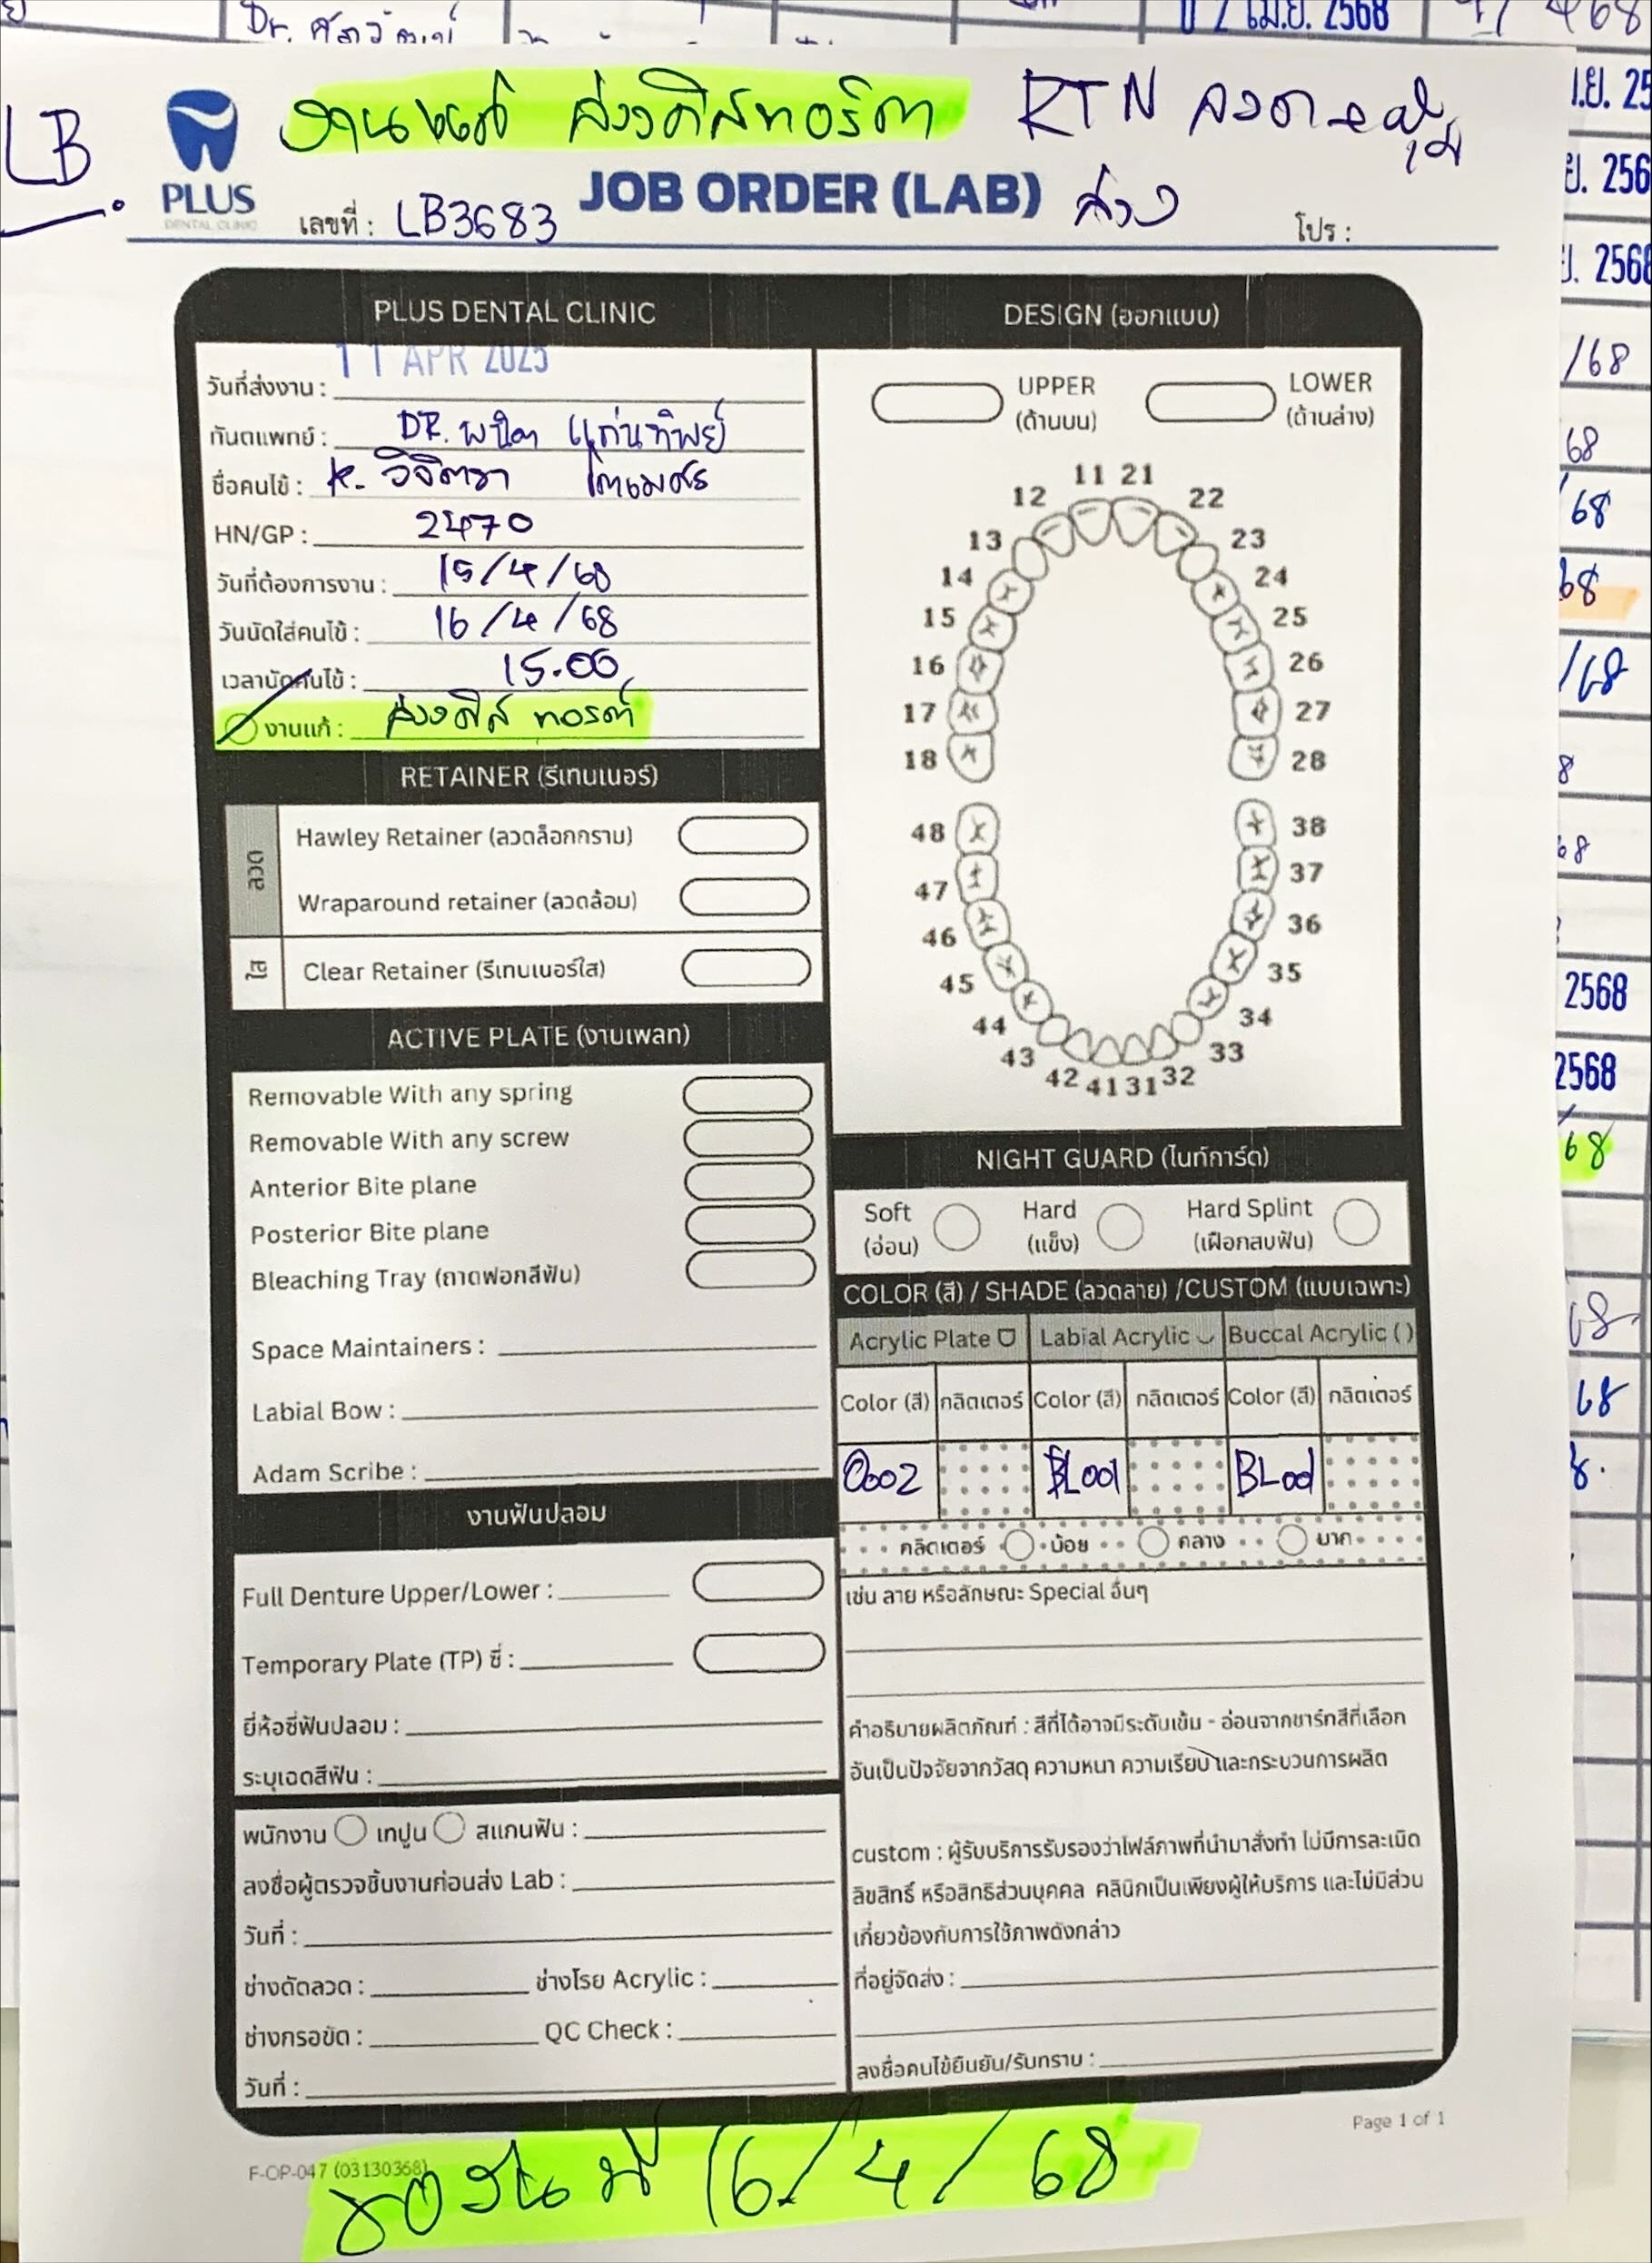 Dr.
2 เม.ย. 2568
LB.
งานแก้ ส่งดิสทอริตา RTN ลวด
PLUS
DENTAL CLINIC
JOB ORDER (LAB)
ล่าง
เลขที่ : LB3683
โปร :
PLUS DENTAL CLINIC
11 APR 2025
วันที่ส่งงาน :
ทันตแพทย์ : DR. พนิดา แก่นทิพย์
ชื่อคนไข้ : K. วิจิตรา
HN/GP : 2470
วันที่ต้องการงาน : 15/4/68
วันนัดใส่คนไข้ : 16/4/68
เวลานัดคนไข้ : 15.00
งานแก้ : ส่งดิส ทอรต์
RETAINER (รีเทนเนอร์)
ลวด
Hawley Retainer (ลวดล็อกกราม)
Wraparound retainer (ลวดล้อม)
ใส
Clear Retainer (รีเทนเนอร์ใส)
ACTIVE PLATE (งานเพลท)
Removable With any spring
Removable With any screw
Anterior Bite plane
Posterior Bite plane
Bleaching Tray (ถาดฟอกสีฟัน)
Space Maintainers :
Labial Bow :
Adam Scribe :
งานฟันปลอม
Full Denture Upper/Lower :
Temporary Plate (TP) ซี่ :
ยี่ห้อซี่ฟันปลอม :
ระบุเฉดสีฟัน :
พนักงาน เทปูน สแกนฟัน :
ลงชื่อผู้ตรวจชิ้นงานก่อนส่ง Lab :
วันที่ :
ช่างดัดลวด : ช่างโรย Acrylic :
ช่างกรอขัด : QC Check :
วันที่ :
DESIGN (ออกแบบ)
UPPER LOWER
(ด้านบน) (ด้านล่าง)
11 21
12 22
13 23
14 24
15 25
16 26
17 27
18 28
48 38
47 37
46 36
45 35
44 34
43 33
42 41 31 32
NIGHT GUARD (ไนท์การ์ด)
Soft Hard Hard Splint
(อ่อน) (แข็ง) (เฝือกสบฟัน)
COLOR (สี) / SHADE (ลวดลาย) /CUSTOM (แบบเฉพาะ)
Acrylic Plate Labial Acrylic Buccal Acrylic ( )
Color (สี) กลิตเตอร์ Color (สี) กลิตเตอร์ Color (สี) กลิตเตอร์
0002 BL001 BL001
กลิตเตอร์ น้อย กลาง มาก
เช่น ลาย หรือลักษณะ Special อื่นๆ
คำอธิบายผลิตภัณฑ์ : สีที่ได้อาจมีระดับเข้ม - อ่อนจากชาร์ทสีที่เลือก
อันเป็นปัจจัยจากวัสดุ ความหนา ความเรียบ และกระบวนการผลิต
custom : ผู้รับบริการรับรองว่าไฟล์ภาพที่นำมาสั่งทำ ไม่มีการละเมิด
ลิขสิทธิ์ หรือสิทธิส่วนบุคคล คลินิกเป็นเพียงผู้ให้บริการ และไม่มีส่วน
เกี่ยวข้องกับการใช้ภาพดังกล่าว
ที่อยู่จัดส่ง :
ลงชื่อคนไข้ยืนยัน/รับทราบ :
Page 1 of 1
F-OP-047 (03130368)
ขอวันที่ 16/4/68